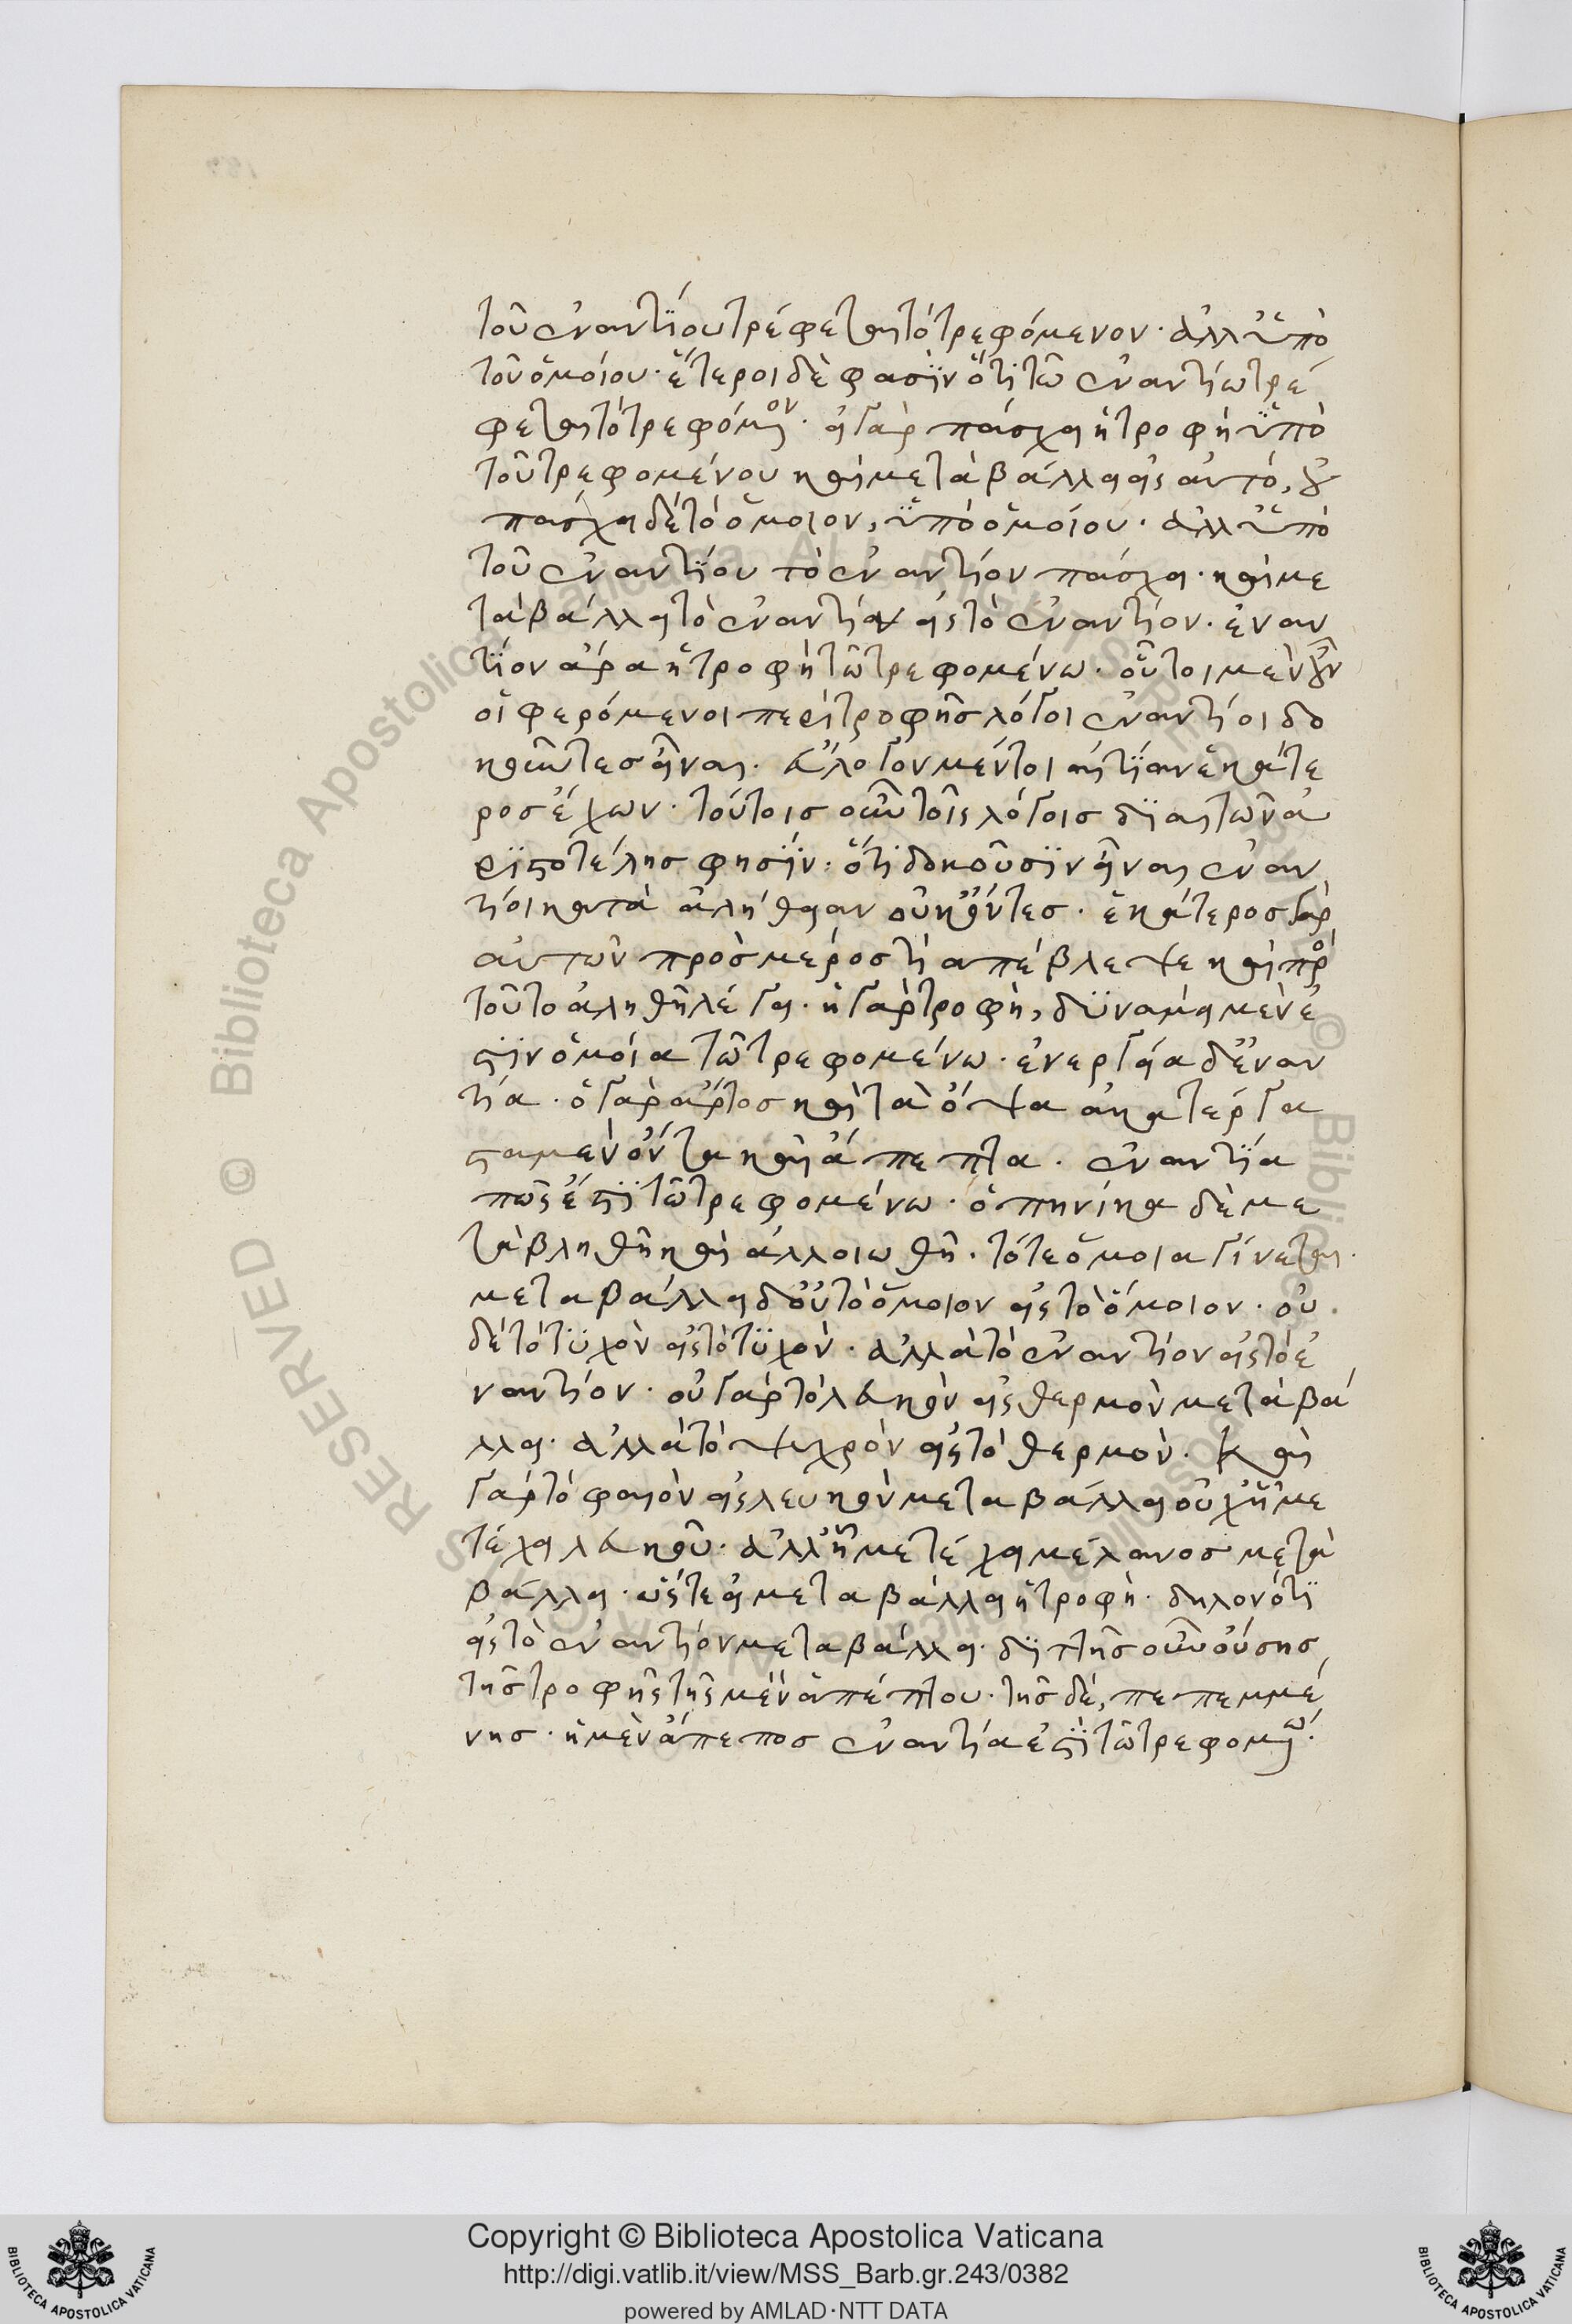 τοῦ ἐναντίου τρέφεται τὸ τρεφόμενον· ἀλλ' ὑπὸ
τοῦ ὁμοίου· ἕτεροι δὲ φασὶν ὅτι τῶ ἐναντίω τρέ
φεται τὸ τρεφόμενον· εἰ γὰρ πάσχει ἡ τροφὴ ὑπὸ
τοῦ τρεφομένου καὶ μεταβάλλει εἰς αὐτό, οὐ
πασχει δὲ τὸ ὅμοιον, ὑπὸ ὁμοίου· ἀλλ' ὑπὸ
τοῦ ἐναντίου τὸ ἐναντίον πάσχει· καὶ με
ταβάλλει τὸ ἐναντίον εἰς τὸ ἐναντίον· ἐναν
τίον ἄρα ἡ τροφὴ τῶ τρεφομένω· οὗτοι μὲν οὖν
οἱ φερόμενοι περὶ τροφῆς λόγοι ἐναντίοι δο
κοῦντες εἶναι· εὔλογον μέντοι αἰτίαν ἑκάτε
ρος ἔχων· τούτοις οὖν τοῖς λόγοις διαιτῶν ἀ
ριστοτέλης φησὶν: ὅτι δοκοῦσιν εἶναι ἐναν
τίοι κατὰ ἀλήθειαν οὐκ ὄντες· ἑκάτερος γὰρ
αὐτῶν πρὸς μέρος τι απέβλεψε καὶ πρὸς
τοῦτο ἀληθῆ λέγει· ἡ γὰρ τροφὴ, δυνάμει μὲν ἐ
στιν ὁμοία τῶ τρεφομένω· ἐνεργεία δ' ἐναν
τία· ὁ γὰρ ἄρτος καὶ τὰ ὄψα ἀκατέργα
στα μὲν ὄντα καὶ ἄπεπτα· ἐναντία
πῶς ἐστὶ τῶ τρεφομένω· ὁπηνίκα δὲ με
ταβληθῆ καὶ ἀλλοιωθῆ· τότε ὅμοια γίνεται·
μεταβάλλει δ' οὐ τὸ ὅμοιον εἰς τὸ ὅμοιον· οὐ
δὲ τὸ τυχὸν εἰς τὸ τυχόν· ἀλλὰ τὸ ἐναντίον εἰς τὸ ἐ
ναντίον· οὐ γὰρ τὸ λευκὸν εἰς θερμὸν μεταβά
λλει· ἀλλὰ τὸ ψυχρὸν εἰς τὸ θερμόν· καὶ
γὰρ τὸ φαιὸν εἰς λευκὸν μεταβάλλει οὐχ ἧ με
τέχει λευκοῦ· ἀλλ' ἧ μετέχει μέλανος μετα
βάλλει· ὥστε εἰ μεταβάλλει ἡ τροφὴ· δηλονότι
εἰς τὸ ἐναντίον μεταβάλλει· διττῆς οὖν οὔσης
τῆς τροφῆς τῆς μὲν ἀπέπτου· τῆς δὲ, πεπεμμέ
νης· ἡ μὲν ἄπεπος ἐναντία ἐστὶ τῶ τρεφομένω·
Copyright © Biblioteca Apostolica Vaticana
http://digi.vatlib.it/view/MSS_Barb.gr.243/0382
powered by AMLAD·NTT DATA